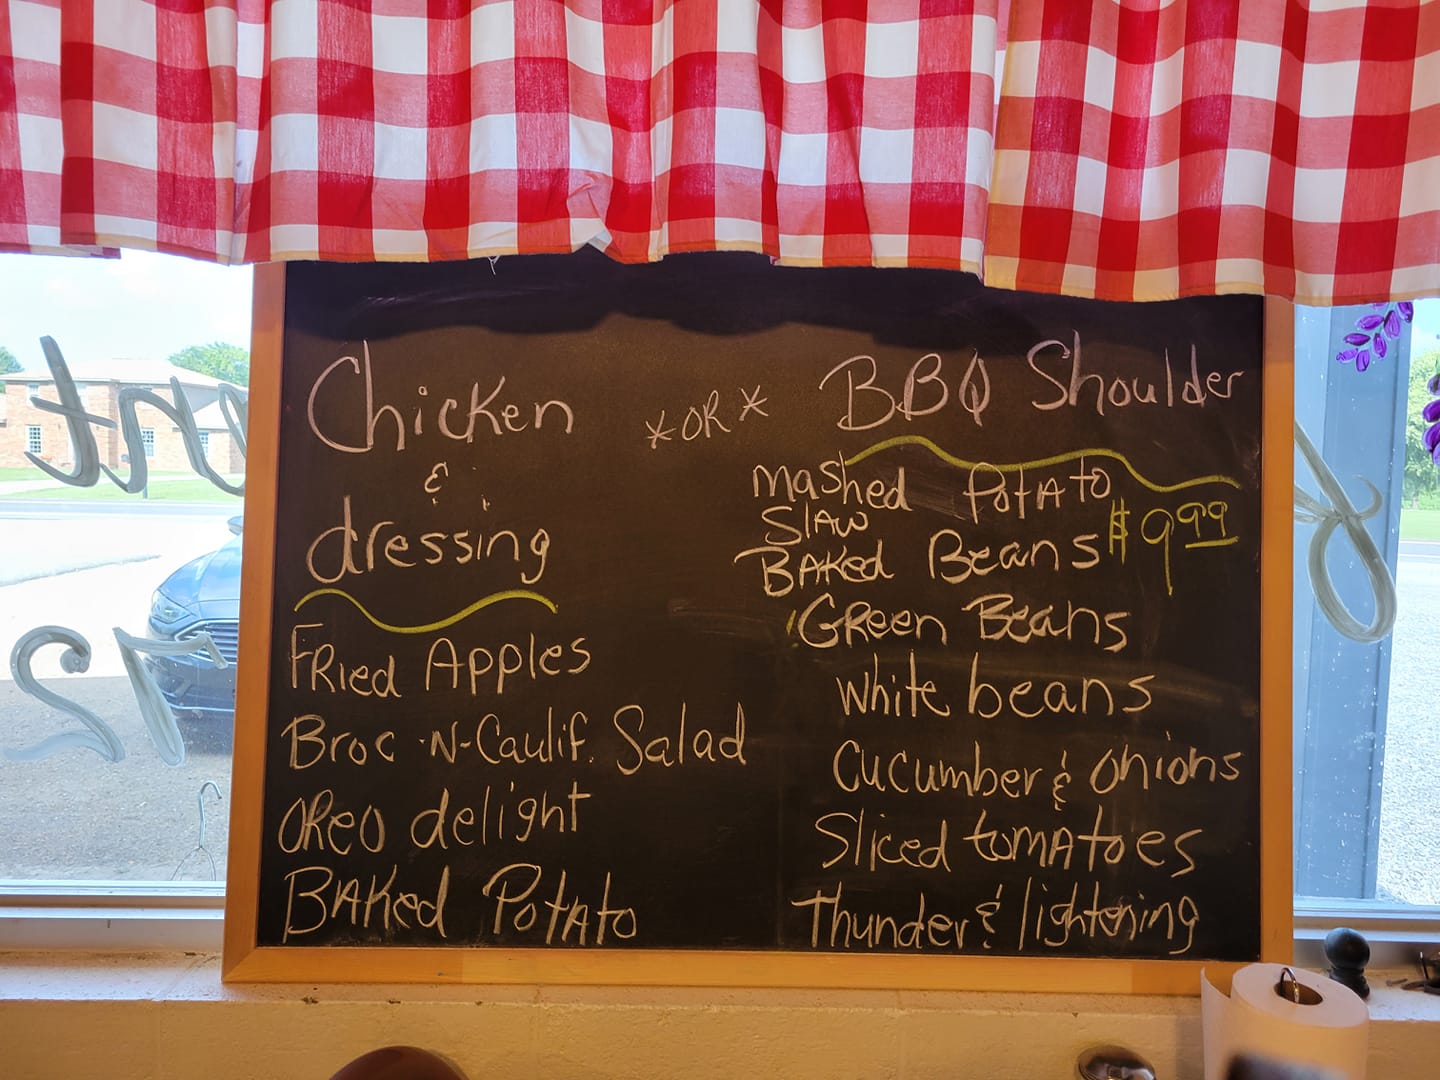 Chicken
&
dressing
Fried Apples
Broc-N-Caulif. Salad
OReo delight
BAKed PotAto
*OR*
BBQ Shoulder
mashed PotAto
SlAW
BAKed Beans
$9.99
GReen Beans
white beans
Cucumber & Onions
Sliced tomAToes
Thunder & lightening